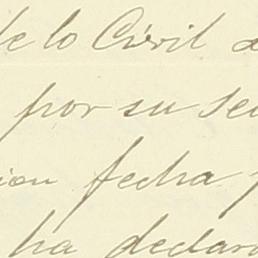 de lo Civil
por su se
ion fecha
ha declara